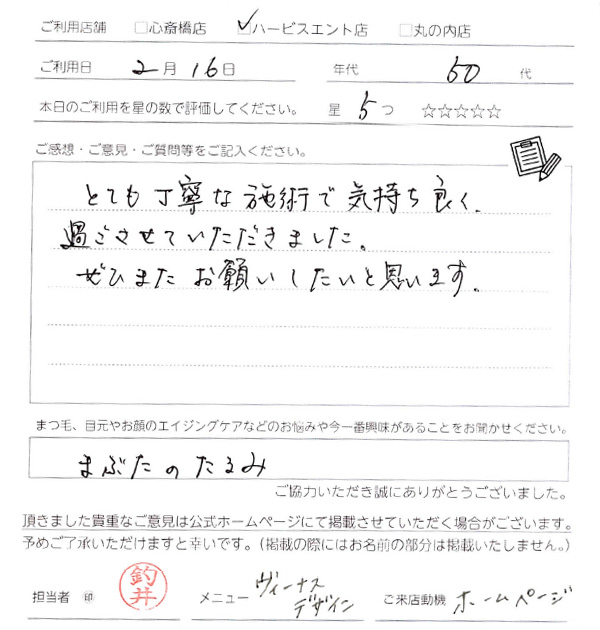 ご利用店舗 □心斎橋店 ☑ハービスエント店 □丸の内店
ご利用日 2月16日 年代 50代
本日のご利用を星の数で評価してください。 星 5つ ☆☆☆☆☆
ご感想・ご意見・ご質問等をご記入ください。
とても丁寧な施術で気持ち良く、
過ごさせていただきました。
ぜひまたお願いしたいと思います。
まつ毛、目元やお顔のエイジングケアなどのお悩みや今一番興味があることをお聞かせください。
まぶたのたるみ
ご協力いただき誠にありがとうございました。
頂きました貴重なご意見は公式ホームページにて掲載させていただく場合がございます。
予めご了承いただけますと幸いです。（掲載の際にはお名前の部分は掲載いたしません。）
担当者 ㊞ 釣井 メニュー ヴィーナスデザイン ご来店動機 ホームページ